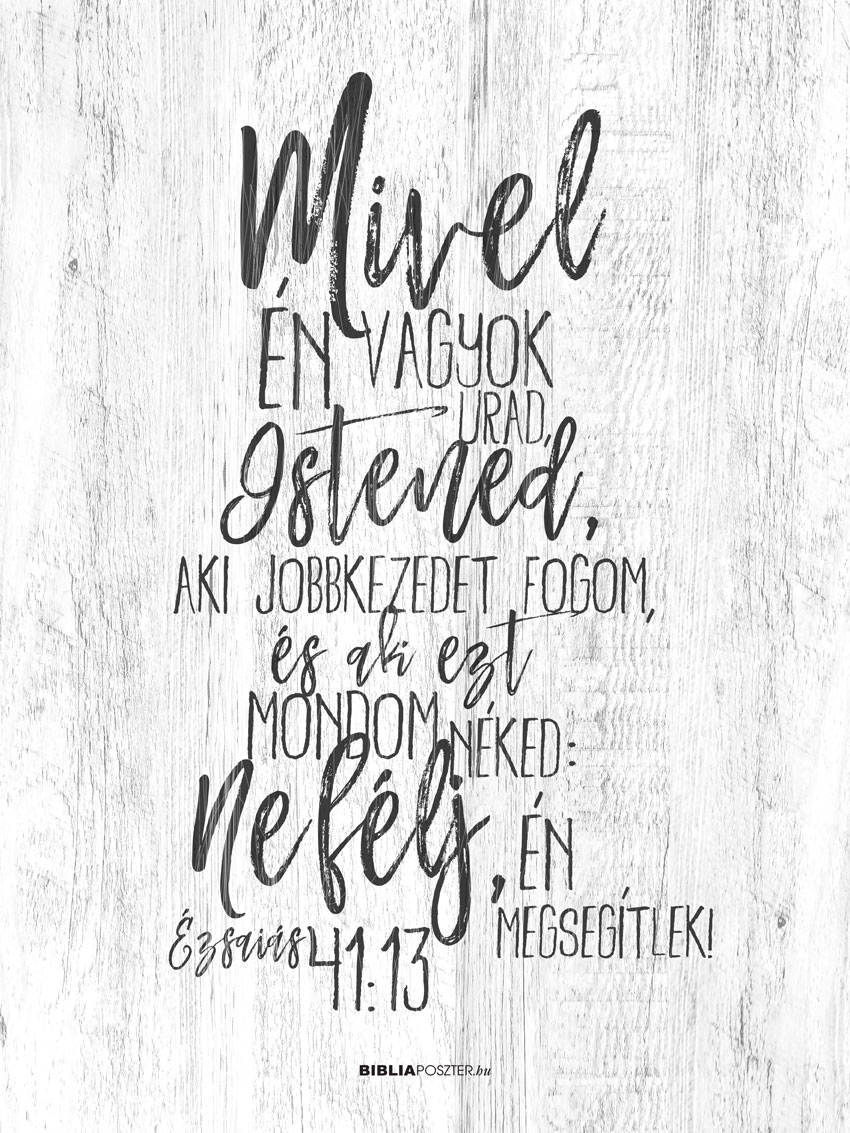 Mivel
ÉN VAGYOK
URAD,
Istened,
AKI JOBBKEZEDET FOGOM,
és aki ezt
MONDOM NÉKED:
Ne félj, ÉN
MEGSEGÍTLEK!
Ézsaiás 41:13
BIBLIAPOSZTER.hu